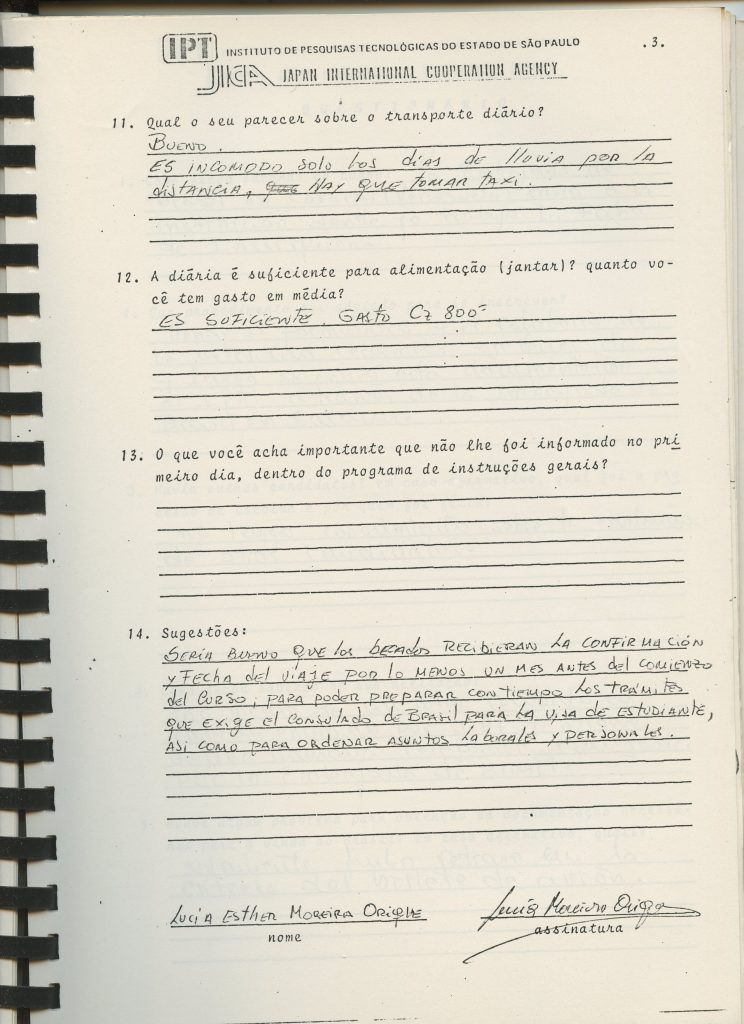 IPT INSTITUTO DE PESQUISAS TECNOLÓGICAS DO ESTADO DE SÃO PAULO .3.
JICA JAPAN INTERNATIONAL COOPERATION AGENCY
11. Qual o seu parecer sobre o transporte diário?
BUENO.
ES INCOMODO solo los días de lluvia por la
distancia, HAY QUE TOMAR TAXI.
12. A diária é suficiente para alimentação (jantar)? quanto vo-
cê tem gasto em média?
ES SUFICIENTE. GASTO Cz 800=
13. O que você acha importante que não lhe foi informado no pri
meiro dia, dentro do programa de instruções gerais?
14. Sugestões:
SERÍA BUENO QUE los BECADOS RECIBIERAN LA CONFIRMACIÓN
Y FECHA del VIAJE POR lo MENOS UN MES ANTES del COMIENZO
del CURSO, PARA PODER PREPARAR CON TIEMPO LOS TRÁMITES
QUE EXIGE el CONSULADO DE BRASIL PARA LA VISA DE ESTUDIANTE,
ASI COMO PARA ORDENAR ASUNTOS LABORALES Y PERSONALES.
LUCÍA ESTHER MOREIRA ORIQUE
nome
assinatura